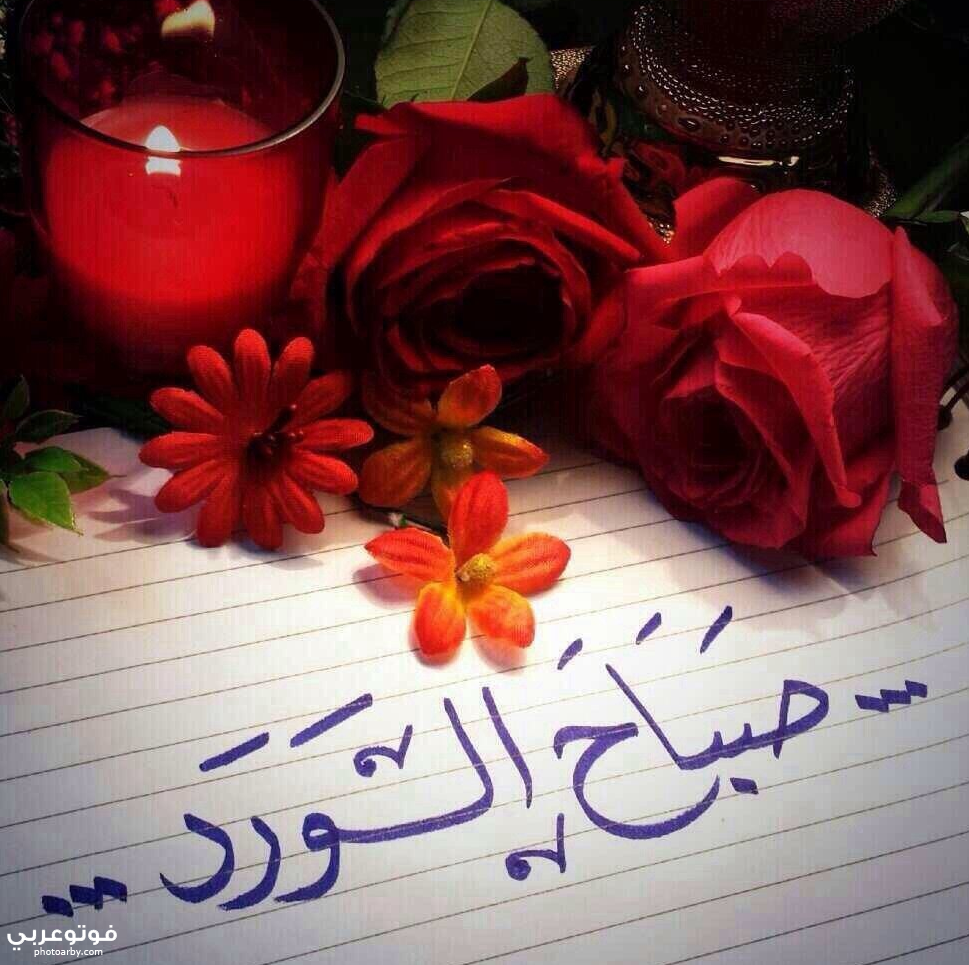 ... صَبَاَحَ الورد ...
فوتوعربي
photoarby.com